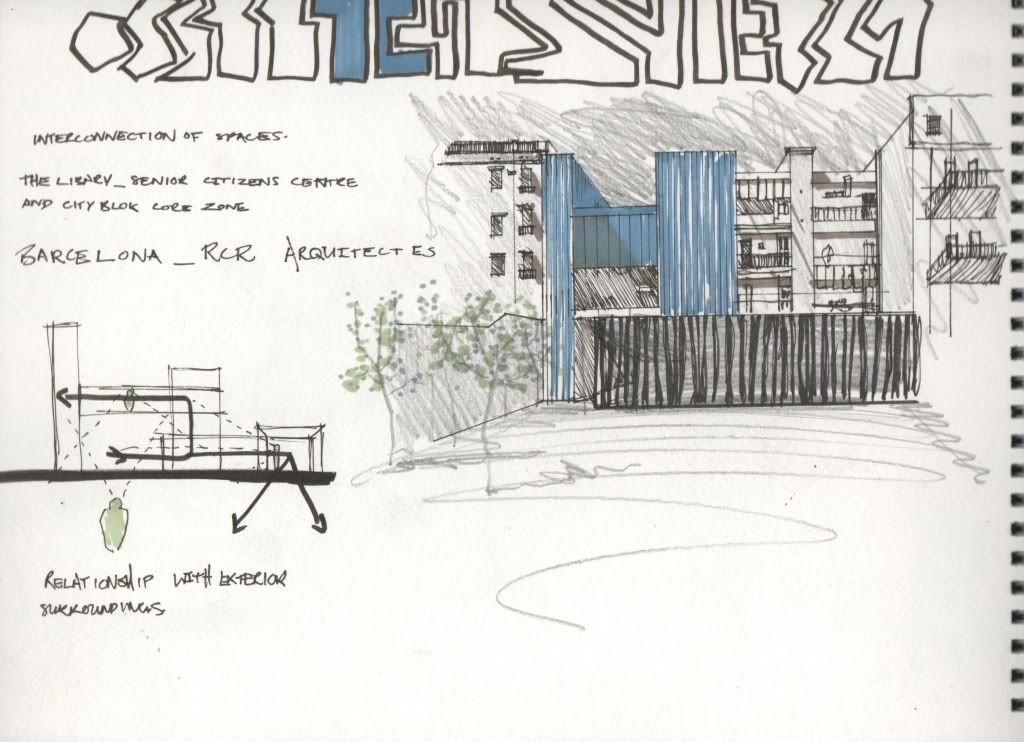 INTERCONNECTION OF SPACES.
THE LIBARY_SENIOR CITIZENS CENTRE
AND CITY BLOK CORE ZONE
BARCELONA _ RCR ARQUITECTES
RELATIONSHIP WITH EXTERIOR
SURROUNDINGS